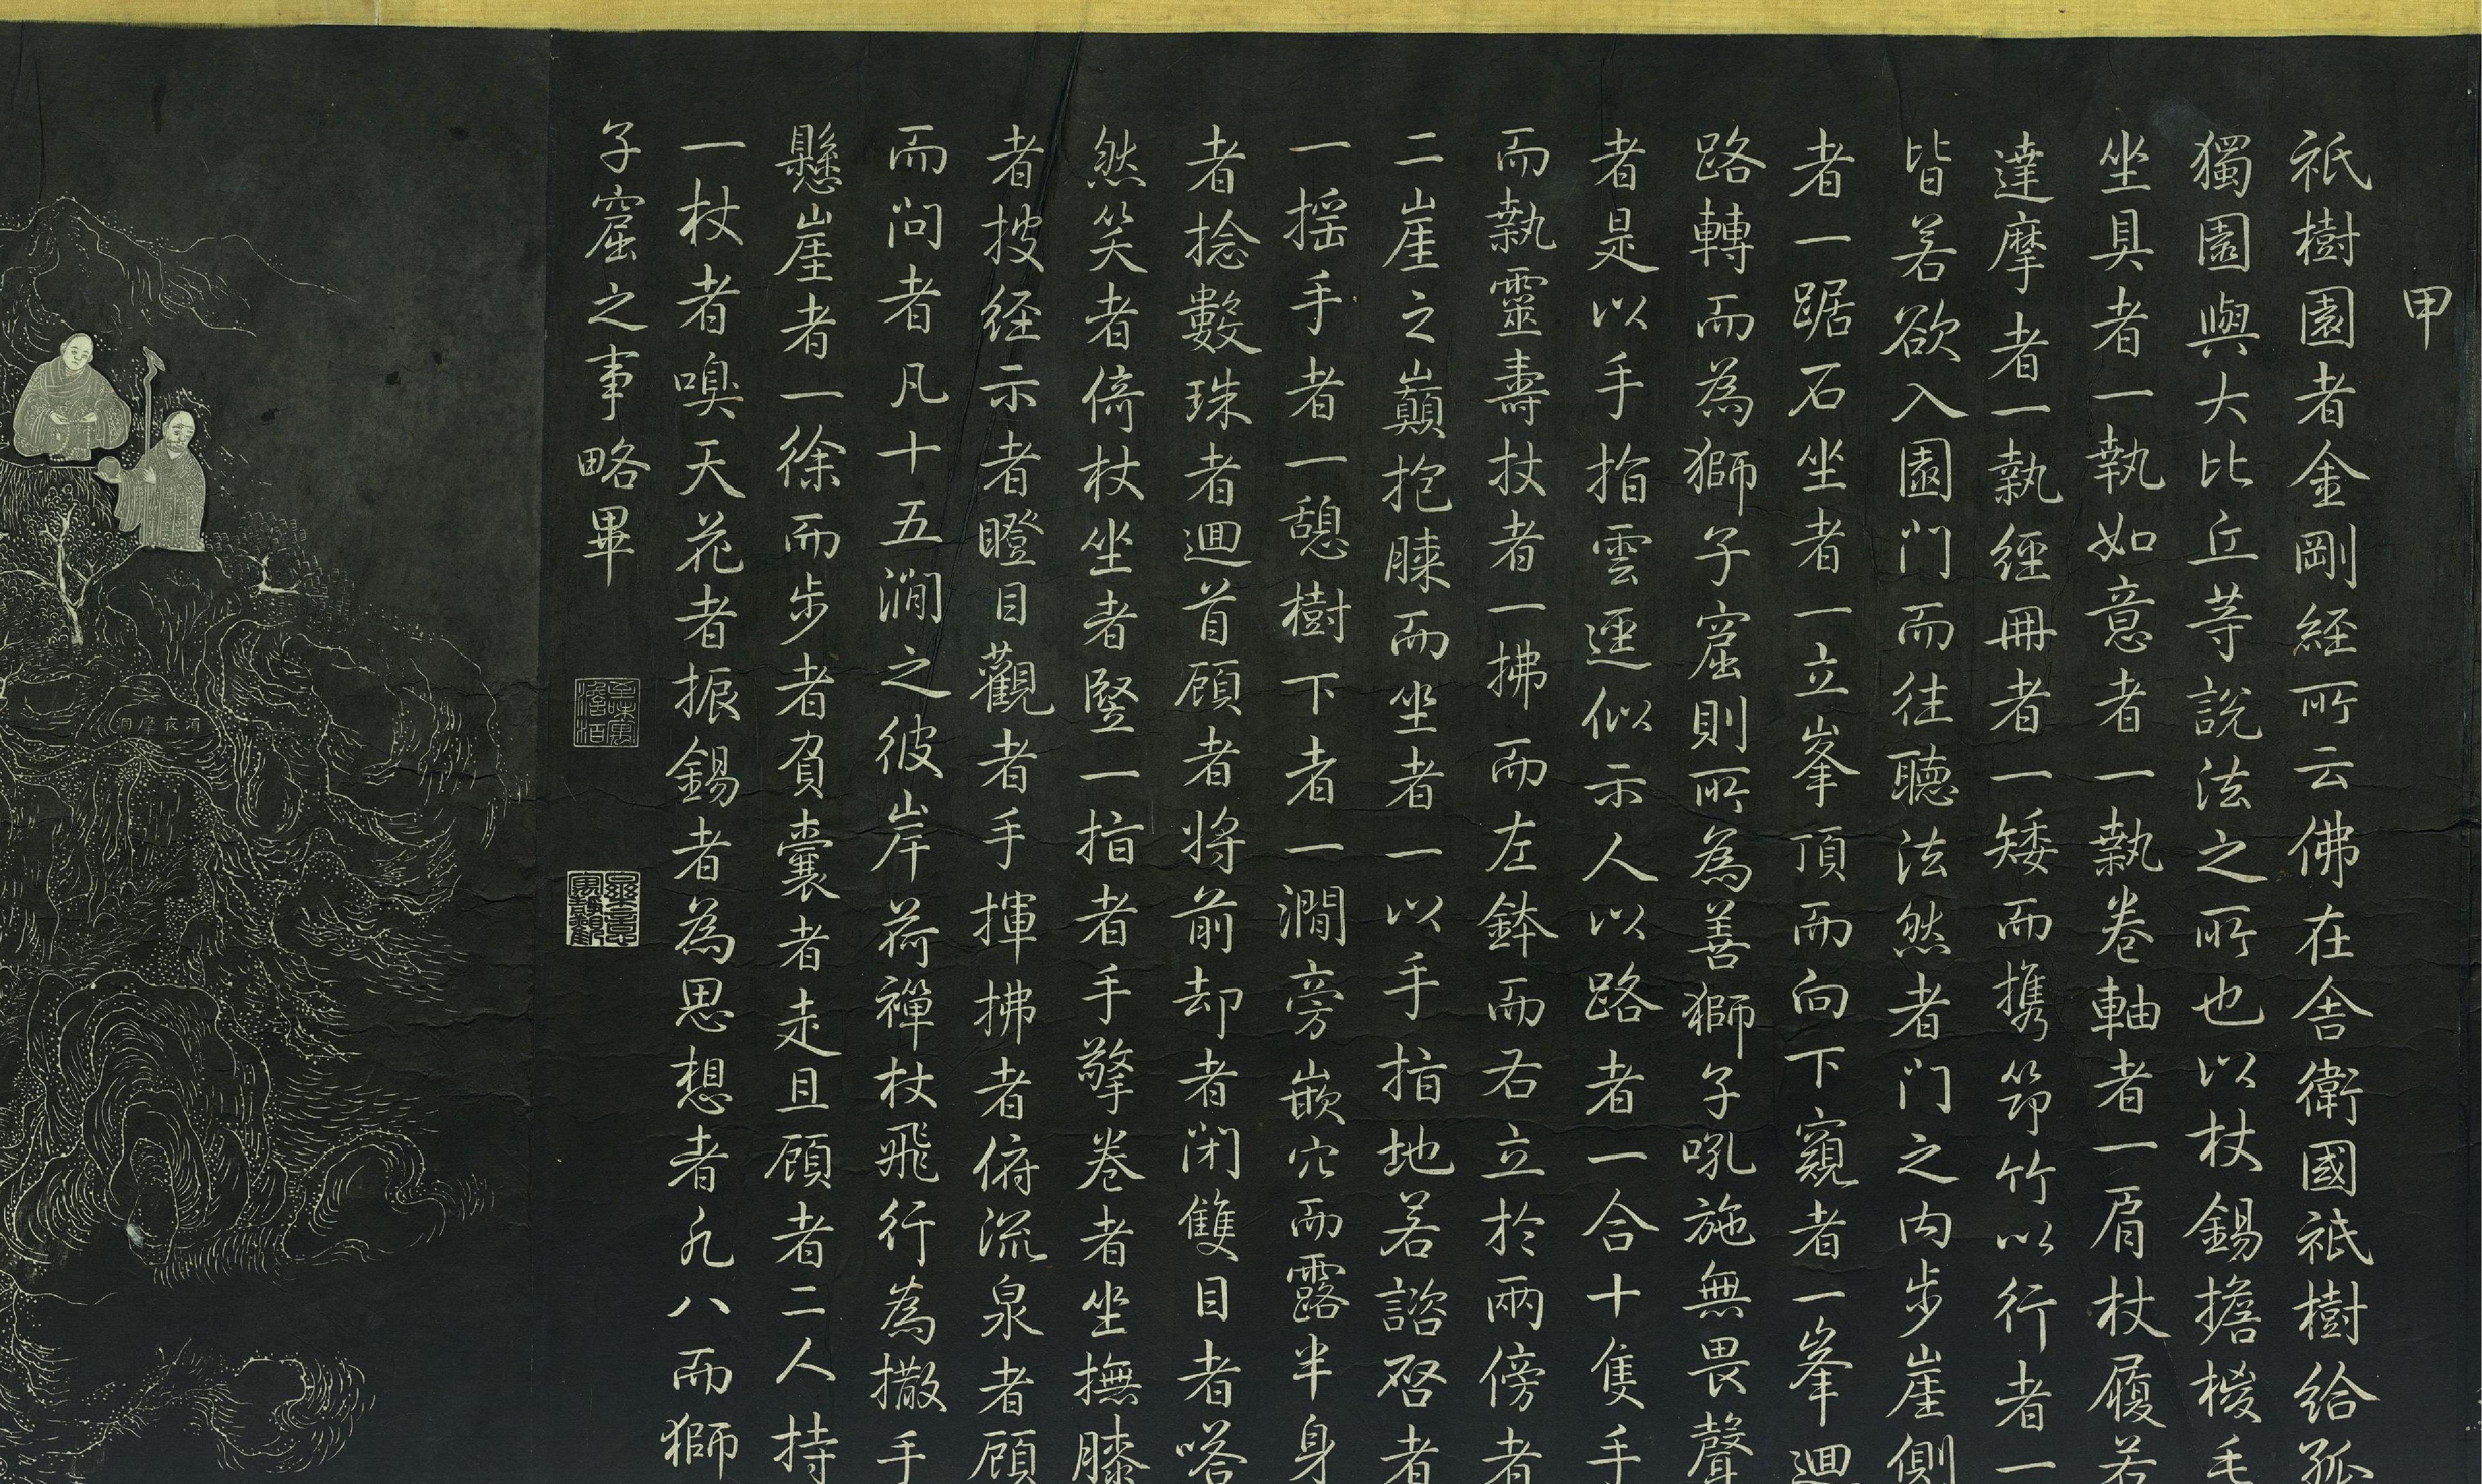 甲
祇樹園者金剛經所云佛在舍衛國祇樹給孤
獨園與大比丘等說法之所也以杖錫擔椶毛
坐具者一執如意者一執卷軸者一肩杖履若
達摩者一執經冊者一矮而携笻竹以行者一
皆若欲入園门而往聽法然者门之内步崖側
者一踞石坐者一立峯頂而向下窺者一峯迴
路轉而為獅子窟則所為善獅子吼施無畏聲
者是以手指雲還似示人以路者一合十隻手
而執靈壽杖者一拂而左鉢而右立於兩傍者
二崖之巔抱膝而坐者一以手指地若諮啓者
一搖手者一憩樹下者一澗旁嵌穴而露半身
者捻數珠者迴首顧者將前却者闭雙目者嗒
然笑者倚杖坐者竪一指者手擎卷者坐撫膝
者披経示者瞪目觀者手揮拂者俯流泉者顧
而问者凡十五澗之彼岸荷禪杖飛行為撒手
懸崖者一徐而步者負囊者走且顧者二人持
一杖者嗅天花者振錫者為思想者凢八而獅
子窟之事略畢
須夜摩洞